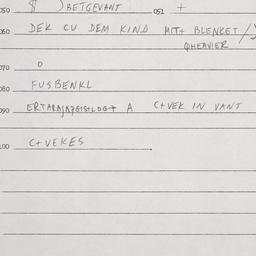 050 $ ) BETGEVANT 051 +
060 DEK CU DEM KIND MIT+ BLENKET /
QHEAVIER
070 0
080 FUSBENKL
090 A C+VEK IN VANT
100 C+VEKES